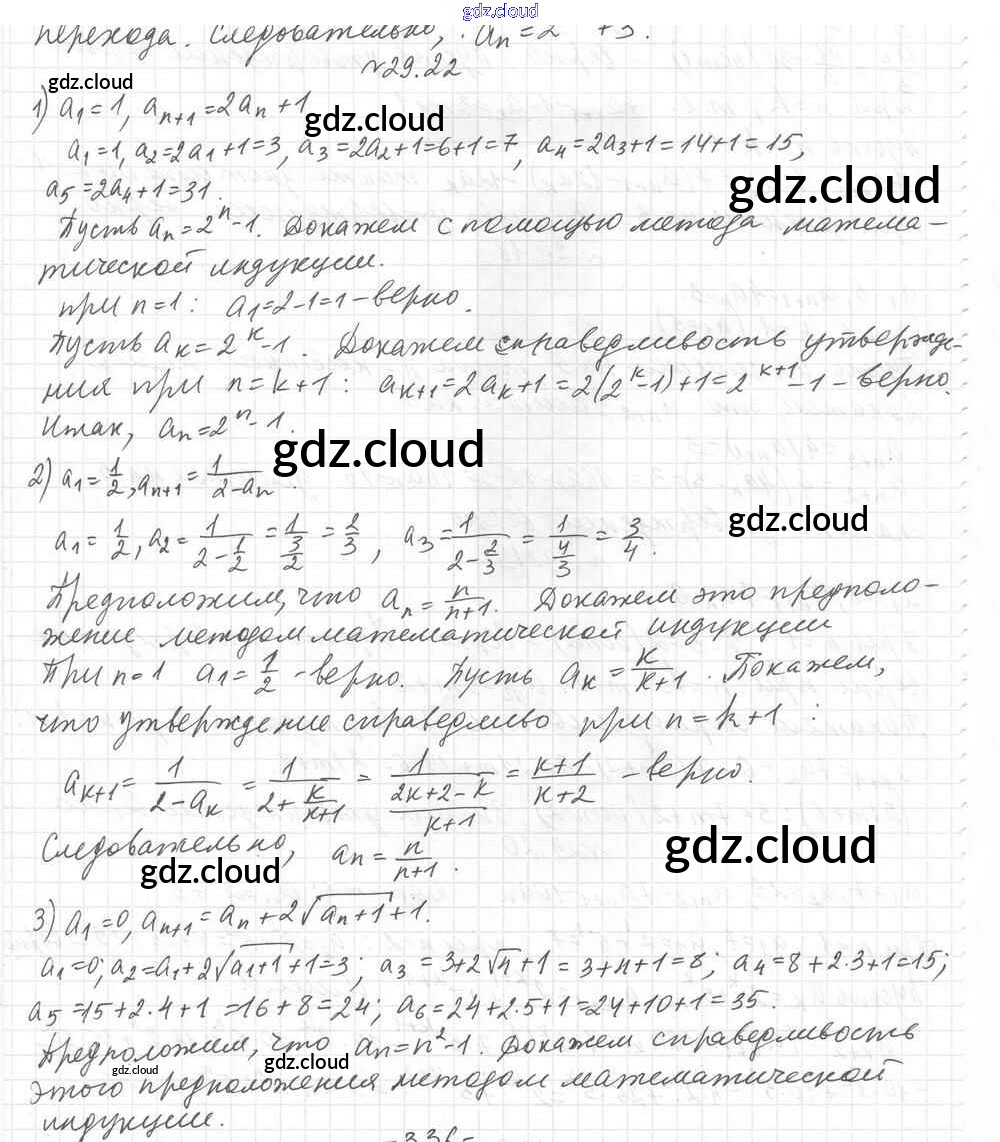 gdz.cloud
перехода. Следовательно, aₙ=2 +3.
№29.22
gdz.cloud
1) a₁=1, aₙ₊₁=2aₙ+1
gdz.cloud
a₁=1, a₂=2a₁+1=3, a₃=2a₂+1=6+1=7, a₄=2a₃+1=14+1=15,
a₅=2a₄+1=31.
gdz.cloud
Пусть aₙ=2ⁿ-1. Докажем с помощью метода матема-
тической индукции.
при n=1: a₁=2-1=1-верно.
Пусть aₖ=2ᵏ-1. Докажем справедливость утвержде-
ния при n=k+1: aₖ₊₁=2aₖ+1=2(2ᵏ-1)+1=2ᵏ⁺¹-1-верно.
Итак, aₙ=2ⁿ-1.
gdz.cloud
2) a₁=1/2, aₙ₊₁=1/(2-aₙ).
gdz.cloud
a₁=1/2, a₂=1/(2-1/2)=1/(3/2)=2/3, a₃=1/(2-2/3)=1/(4/3)=3/4.
Предположим, что aₙ=n/(n+1). Докажем это предполо-
жение методом математической индукции
При n=1 a₁=1/2-верно. Пусть aₖ=k/(k+1). Покажем,
что утверждение справедливо при n=k+1:
aₖ₊₁=1/(2-aₖ)=1/(2+k/(k+1))=1/((2k+2-k)/(k+1))=(k+1)/(k+2) -верно.
Следовательно, aₙ=n/(n+1).
gdz.cloud
gdz.cloud
3) a₁=0, aₙ₊₁=aₙ+2√(aₙ+1)+1.
a₁=0; a₂=a₁+2√(a₁+1)+1=3; a₃=3+2√4+1=3+4+1=8; a₄=8+2·3+1=15;
a₅=15+2·4+1=16+8=24; a₆=24+2·5+1=24+10+1=35.
Предположим, что aₙ=n²-1. Докажем справедливость
gdz.cloud
gdz.cloud
этого предположения методом математической
индукции.
gdz.cloud